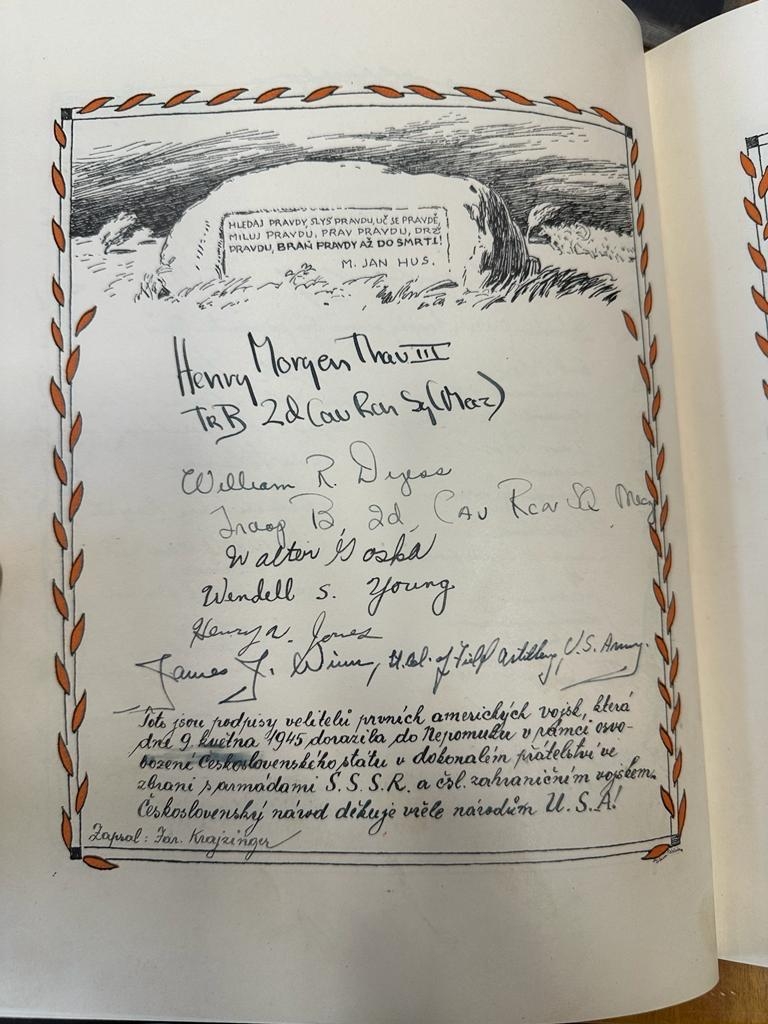 HLEDAJ PRAVDY, SLYŠ PRAVDU, UČ SE PRAVDĚ,
MILUJ PRAVDU, PRAV PRAVDU, DRŽ
PRAVDU, BRAŇ PRAVDY AŽ DO SMRTI!
M. JAN HUS.
Henry Morgenthau III
TR B 2d Cav Rcn Sq (Mez)
William R. Dyess
Troop B, 2d, Cav Rcn SQ Mecz
Walter Goska
Wendell S. Young
Henry N. Jones
James F. Winn, Lt. Col. of Field Artillery, U.S. Army.
Toto jsou podpisy velitelů prvních amerických vojsk, která
dne 9. května 1945 dorazila do Nepomuku v rámci osvo-
bození Československého státu v dokonalém přátelství ve
zbrani s armádami S.S.S.R. a čsl. zahraničním vojskem.
Československý národ děkuje vřele národům U.S.A!
Zapsal: Jar. Krajzinger